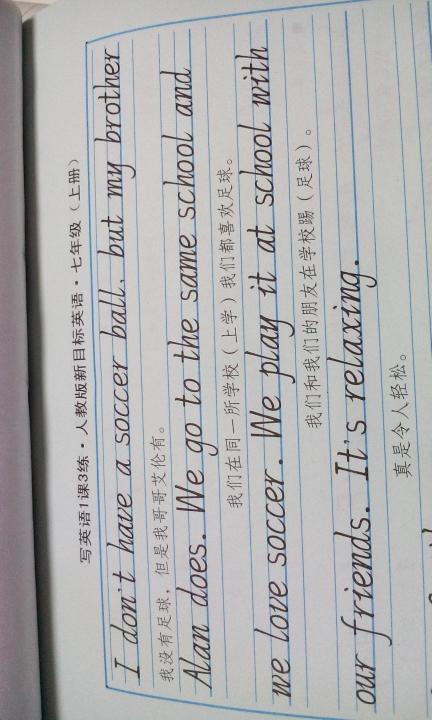 写英语1课3练·人教版新目标英语·七年级（上册）
I don't have a soccer ball. but my brother
我没有足球，但是我哥哥艾伦有。
Alan does. We go to the same school and
我们在同一所学校（上学）我们都喜欢足球。
we love soccer. We play it at school with
我们和我们的朋友在学校踢（足球）。
our friends. It's relaxing.
真是令人轻松。